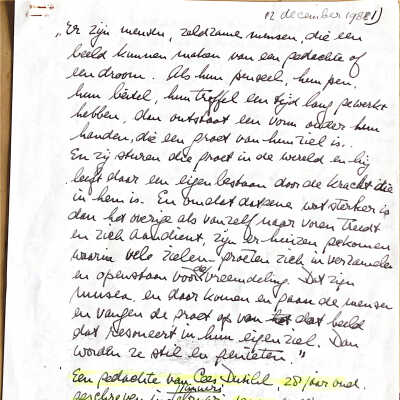 12 december 1988 1)
"Er zijn mensen, zeldzame mensen, die een
beeld kunnen maken van een gedachte of
een droom. Als hun penseel, hun pen,
hun beitel, hun troffel een tijd lang gewerkt
hebben, dan ontstaat een vorm onder hun
handen, die een groet van hun ziel is.
En zij sturen die groet in de wereld en hij
leeft daar een eigen bestaan door de kracht die
in hem is. En omdat datgene wat sterker is
dan het overige als vanzelf naar voren treedt
en zich aandient, zijn er huizen gekomen
waarin vele zielen-groeten zich verzamelen
en openstaan voor de vreemdeling. Dat zijn
musea en daar komen en gaan de mensen
en vangen de groet op van het dat beeld
dat resoneert in hun eigen ziel. Dan
worden ze stil en genieten."
Een gedachte van Cees 28 jaar oud.
geschreven in